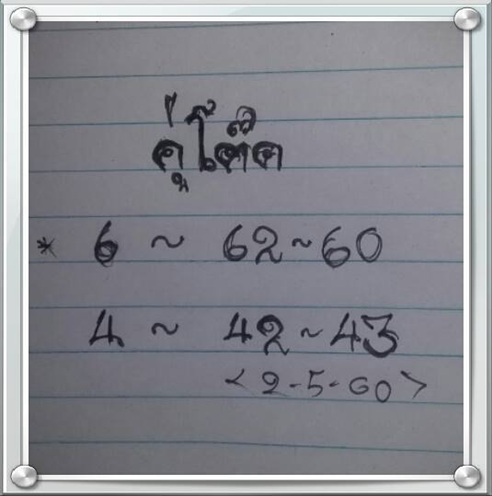 คู่โต๊ด
* 6 ~ 62 ~ 60
4 ~ 42 ~ 43
< 2-5-60 >